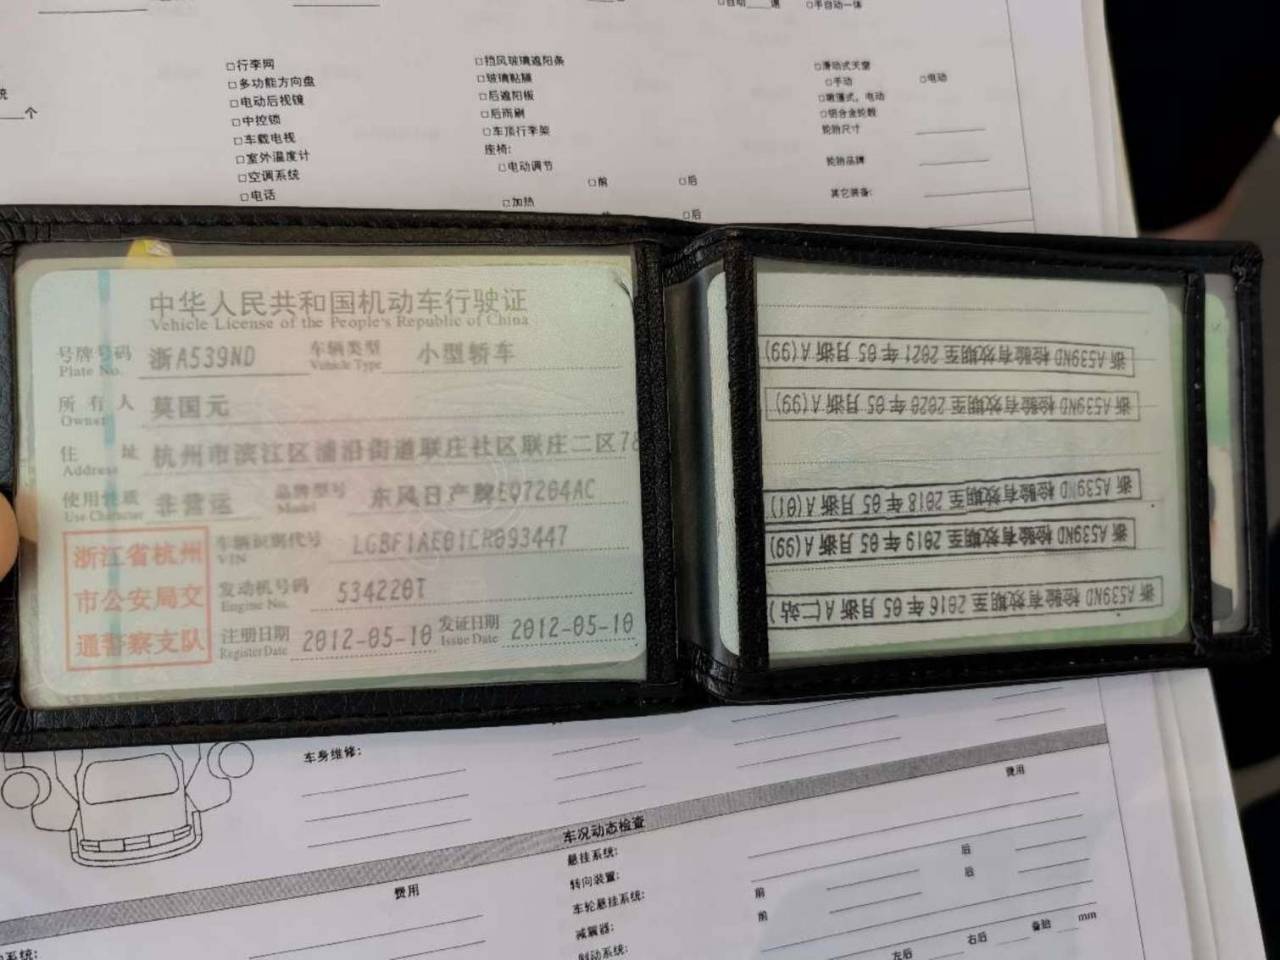 □自动____速 □手自动一体
□行李网
□多功能方向盘
□电动后视镜
□中控锁
□车载电视
□室外温度计
□空调系统
□电话
____个
□挡风玻璃遮阳条
□玻璃贴膜
□后遮阳板
□后雨刷
□车顶行李架
座椅:
□电动调节
□前 □后
□加热
□后
□滑动式天窗
□手动 □电动
□铝合金轮毂
轮胎尺寸
轮胎品牌
其它装备:
中华人民共和国机动车行驶证
Vehicle License of the People's Republic of China
号牌号码 浙A539ND 车辆类型 小型轿车
Plate No. Vehicle Type
所有人 莫国元
Owner
住址 杭州市滨江区浦沿街道联庄社区联庄二区78
Address
使用性质 非营运 品牌型号 东风日产牌EQ7204AC
Use Character Model
浙江省杭州
市公安局交
通警察支队
车辆识别代号 LGBF1AE01CR093447
VIN
发动机号码 534220T
Engine No.
注册日期 2012-05-10 发证日期 2012-05-10
Register Date Issue Date
浙A539ND 检验有效期至2021年05月浙A(99)
浙A539ND 检验有效期至2020年05月浙A(99)
浙A539ND 检验有效期至2018年05月浙A(01)
浙A539ND 检验有效期至2019年05月浙A(99)
浙A539ND 检验有效期至2016年05月浙A(仁站)
车身维修:
费用
车况动态检查
费用
悬挂系统:
转向装置:
车轮悬挂系统:
减震器:
制动系统:
后
前 后
前
左后 右后 备胎 mm